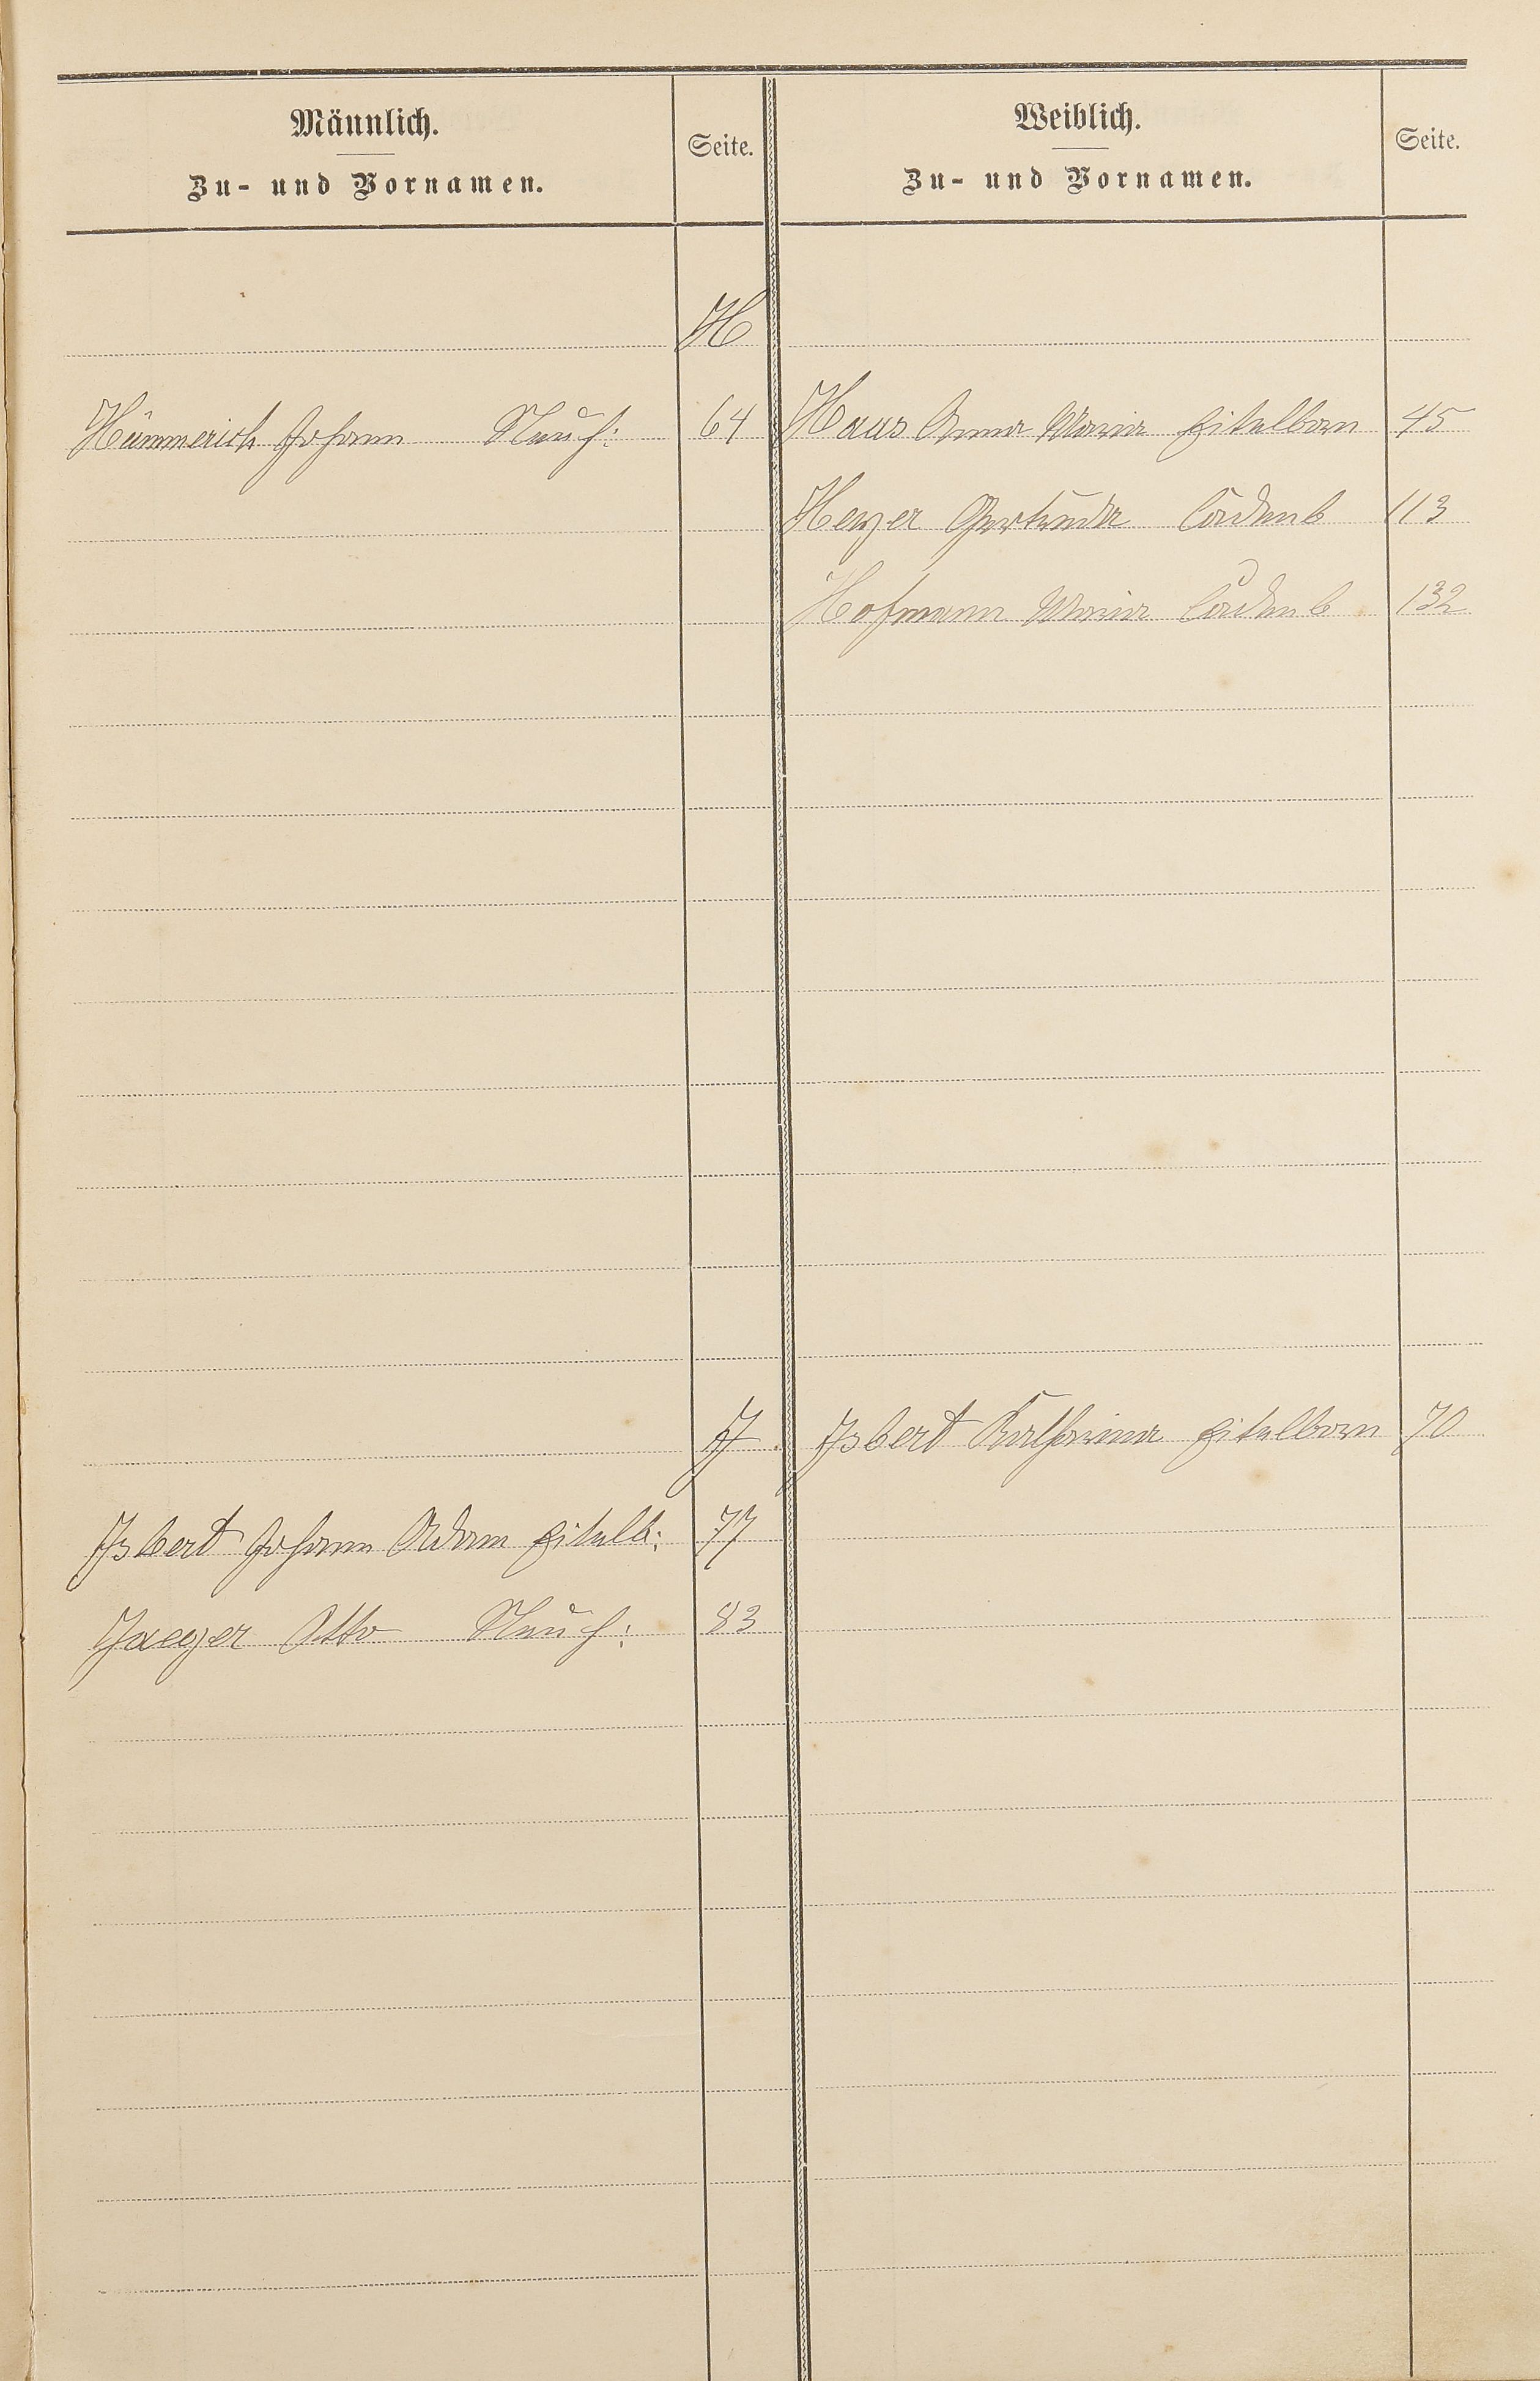 Männlich.
Zu- und Vornamen.
Seite.
Weiblich.
Zu- und Vornamen.
Seite.
H
Hümmerich Johann Neuh: 64
Haus Anna Maria Eitelborn 45
Heyer Gertruda Cadenb 113
Hofmann Maria Cadenb 132
J
Isbert Katharina Eitelborn 70
Isbert Johann Adam Eitelb: 77
Jaeger Otto Neuh: 83